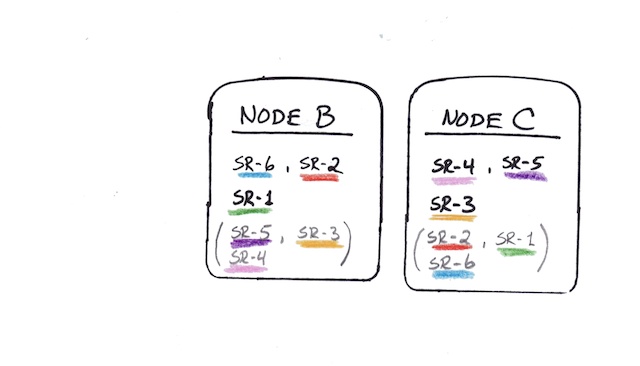 NODE B
SR-6, SR-2
SR-1
(SR-5, SR-3)
SR-4
NODE C
SR-4, SR-5
SR-3
(SR-2, SR-1)
SR-6